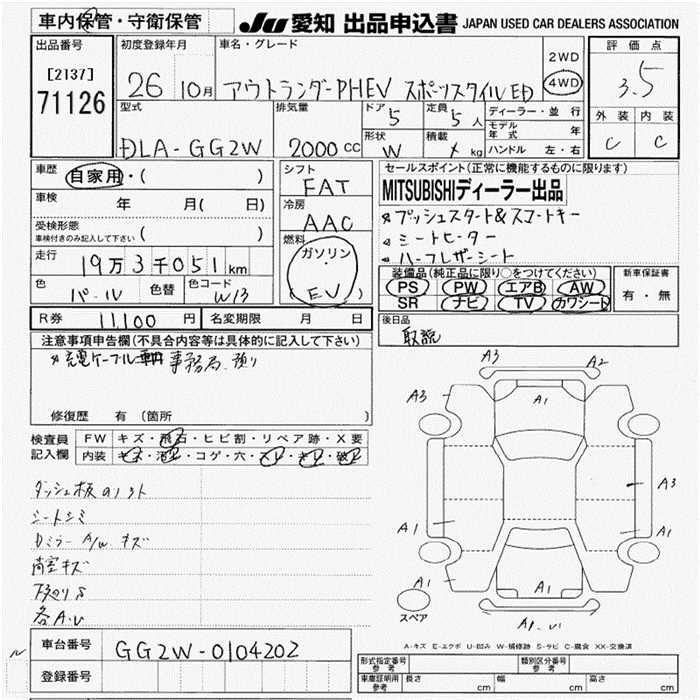 車内保管・守衛保管
JU 愛知 出品申込書 JAPAN USED CAR DEALERS ASSOCIATION
出品番号 初度登録年月 車名・グレード 評価点
[2137] 71126
26 10月 アウトランダーPHEV スポーツスタイルED 2WD 4WD 3.5
型式 排気量 ドア 5 定員 5人 ディーラー・並行 外装 内装
DLA-GG2W 2000cc 形状 W 積載 kg モデル年式 年 C C
ハンドル 左・右
車歴 自家用・( ) シフト FAT セールスポイント(正常に機能するものに限ります)
車検 年 月( 日) 冷房 AAC MITSUBISHIディーラー出品
受検形態 車検付きのみ記入して下さい ( ) プッシュスタート&スマートキー
シートヒーター
走行 19万3千051km 燃料 ガソリン・(EV) ハーフレザーシート
色 パール 色替 色コード W13 装備品(純正品に限り○をつけてください) 新車保証書
PS PW エアB AW 有・無
SR ナビ TV カワシート
R券 11,100円 名変期限 月 日 後日品
取説
注意事項申告欄(不具合内容等は具体的に記入して下さい)
充電ケーブル 事務局預り
修復歴 有 (箇所 )
検査員記入欄 FW キズ・飛石・ヒビ割・リペア跡・X要
内装 キズ・汚レ・コゲ・穴・スレ・キレ・破レ
ダッシュ板のリフト
シートシミ
Dミラー A/w キズ
荷室キズ
下廻りS
各A.U
A3 A2
A3 A1
A3
A1 A1
A1 A1
A1.U
スペア
A-キズ E-エクボ U-凹み W-補修跡 S-サビ C-腐食 XX-交換済
車台番号 GG2W-0104202
登録番号
形式指定番号 参考 類別区分番号 参考
車庫証明用 参考 長さ cm 幅 cm 高さ cm